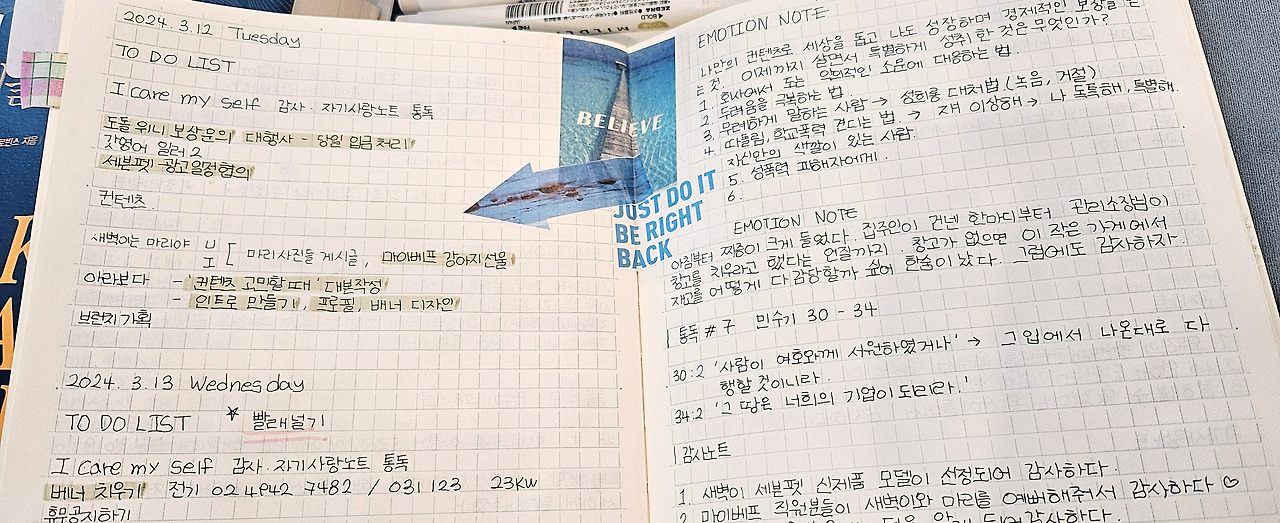 2024. 3.12 Tuesday
TO DO LIST
I care my self 감사·자기사랑노트 통독
도돌 위니 보상운의 대행사 - 당일 입금처리
갓영어 일러 2
세븐펫 - 광고일정협의
컨텐츠
새벽이는 마리야
[ 마리사진들 게시글, 마이베프 강아지선물
아라보다 - '컨텐츠 고민할때' 대본작성
- 인트로 만들기, 프로필, 배너 디자인
브런치 기획
2024. 3.13 Wednesday
TO DO LIST * 빨래널기
I care my self 감사·자기사랑노트 통독
베너 치우기 전기 02 4942 7482 / 031 123 23kw
휴무공지하기
BELIEVE
JUST DO IT
BE RIGHT
BACK
EMOTION NOTE
나만의 컨텐츠로 세상을 돕고 나도 성장하며 경제적인 보상을
는 것. 이제까지 살면서 특별하게 성취한 것은 무엇인가?
1. 회사에서 도는 악의적인 소문에 대응하는 법.
2. 두려움을 극복하는 법
3. 무례하게 말하는 사람 → 성희롱 대처법 (녹음, 거절)
4. 따돌림, 학교폭력 견디는 법. → 쟤 이상해 → 나 독특해, 특별해.
자신만의 색깔이 있는 사람.
5. 성폭력 피해자에게.
6.
EMOTION NOTE
아침부터 짜증이 크게 들었다. 집주인이 건넨 한마디부터 관리소장님이
창고를 치우라고 했다는 언질까지. 창고가 없으면 이 작은 가게에서
재고를 어떻게 다 감당할까 싶어 한숨이 났다. 그럼에도 감사하자.
통독 #7 민수기 30 - 34
30:2 '사람이 여호와께 서원하였거나' → 그 입에서 나온대로 다
행할 것이니라.
34:2 '그 땅은 너희의 기업이 되리라.'
감사노트
1. 새벽이 세븐펫 신제품 모델이 선정되어 감사하다.
2. 마이베프 직원분들이 새벽이와 마리를 예뻐해줘서 감사하다 ♡